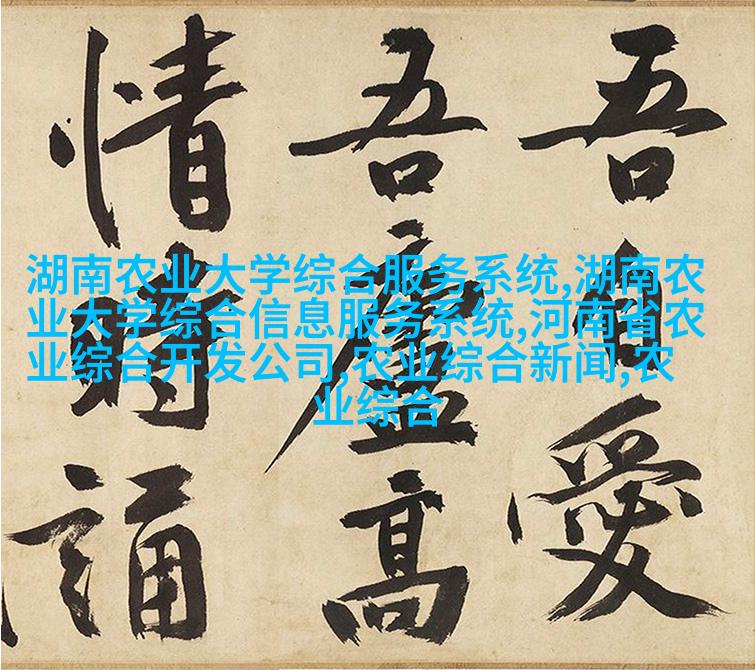 吾自愛
吾廬高
情時誦
湖南农业大学综合服务系统,湖南农
业大学综合信息服务系统,河南省农
业综合开发公司,农业综合新闻,农
业综合